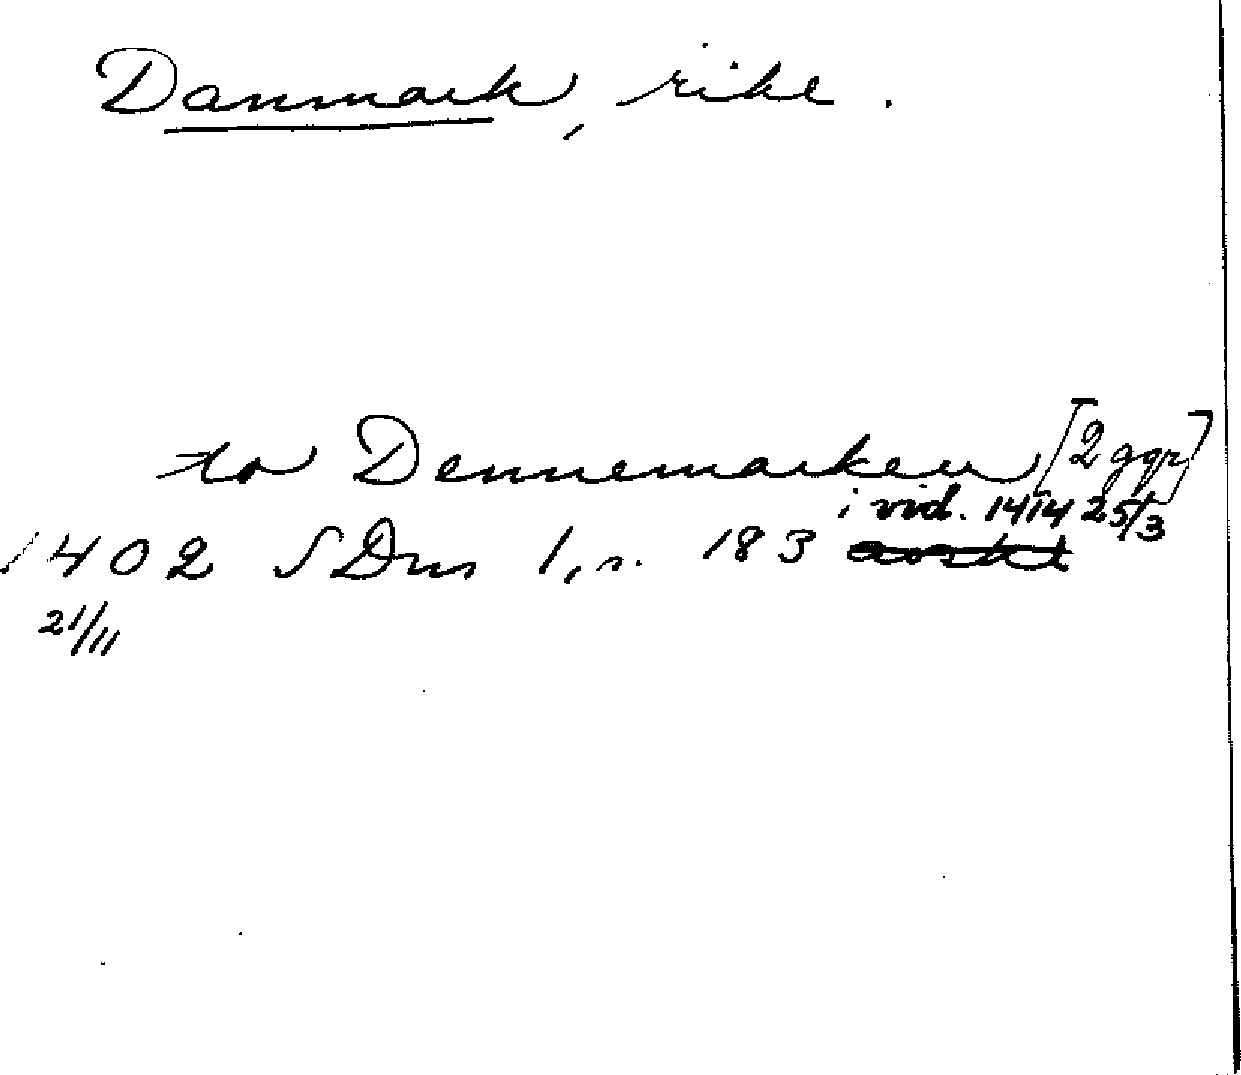 Danmark, rike.
to Dennemarken [2 ggr]
i vid. 1414 25/3
1402 SDns 1, s. 183
21/11